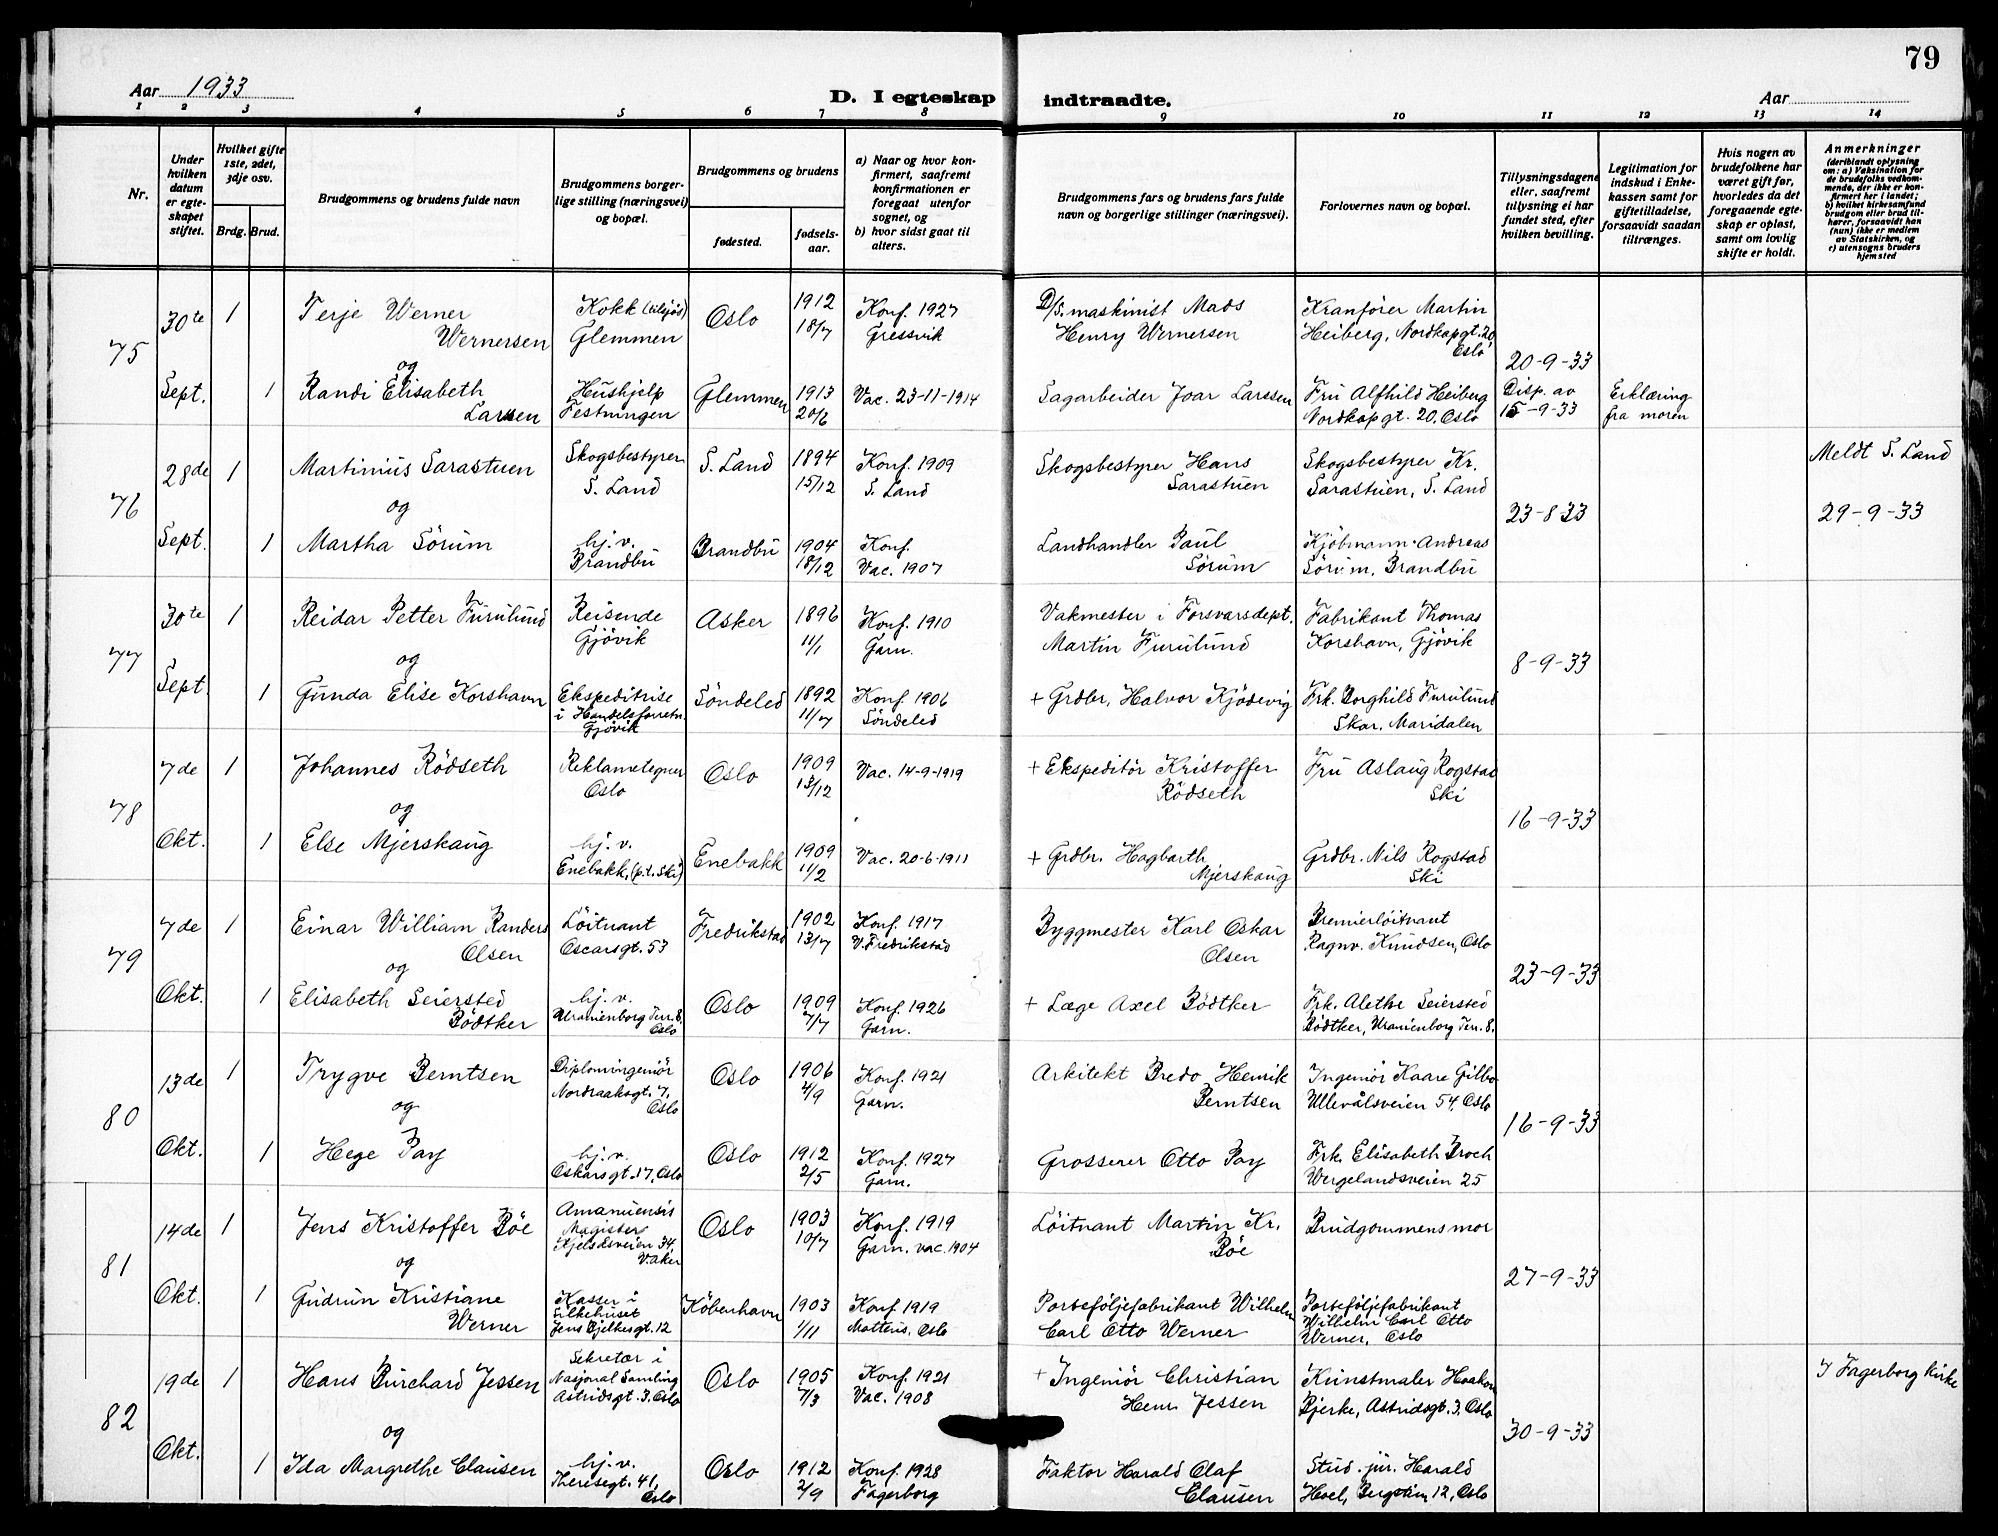 79
Aar 1933
D. I egteskap indtraadte.
Aar
1 2 3 4 5 6 7 8 9 10 11 12 13 14
Nr.
Under hvilken datum er egteskapet stiftet.
Hvilket gifte 1ste, 2det, 3dje osv.
Brdg. Brud.
Brudgommens og brudens fulde navn
Brudgommens borgerlige stilling (næringsvei) og bopæl.
Brudgommens og brudens
fødested.
fødselsaar.
a) Naar og hvor konfirmert, saafremt konfirmationen er foregaat utenfor sognet, og
b) hvor sidst gaat til alters.
Brudgommens fars og brudens fars fulde navn og borgerlige stillinger (næringsvei).
Forlovernes navn og bopæl.
Tillysningsdagene eller, saafremt tillysning ei har fundet sted, efter hvilken bevilling.
Legitimation for indskud i Enkekassen samt for giftetilladelse, forsaavidt saadan tiltrænges.
Hvis nogen av brudefolkene har været gift før, hvorledes da det foregaaende egteskap er opløst, samt om lovlig skifte er holdt.
Anmerkninger
(deriblandt oplysning om: a) Vaksination for de brudefolks vedkommende, der ikke er konfirmert her i landet;
b) hvilket kirkesamfund brudgom eller brud tilhører, forsaavidt han (hun) ikke er medlem av Statskirken, og
c) utensogns bruders hjemsted
75
30te Sept.
1 Terje Werner Wernersen
Kokk (tilsjøs) Glemmen
Oslo
1912 18/7
Konf. 1927 Gressvik
D/S. maskinist Mads Henry Wernersen
Kranfører Martin Heiberg, Nordkapgt. 20, Oslo
og
1 Randi Elisabeth Larsen
Hushjelp Festningen
Glemmen
1913 20/6
Vac. 23-11-1914
Sagarbeider Joar Larssen
Fru Alfhild Heiberg Nordkapgt. 20, Oslo
20-9-33
Disp. av 15-9-33
Erklæring fra moren
76
28de Sept.
1 Martinius Sarastuen
Skogsbestyrer S. Land
S. Land
1894 15/12
Konf. 1909 S. Land
Skogsbestyrer Hans Sarastuen
Skogsbestyrer Kr. Sarastuen, S. Land
Meldt S. Land
og
23-8-33
29-9-33
1 Martha Sörum
hj. v. Brandbu
Brandbu
1904 18/12
Konf. Vac. 1907
Landhandler Paul Sörum
Kjöbmann Andreas Sörum, Brandbu
77
30te Sept
1 Reidar Petter Furulund
Reisende Gjövik
Asker
1896 11/1
Konf. 1910 Garn.
Vakmester i Forsvarsdept. Martin Furulund
Fabrikant Thomas Korshavn, Gjövik
og
8-9-33
1 Gunda Elise Korshavn
Ekspeditrise i Handelsforretn. Gjövik
Söndeled
1892 11/7
Konf. 1906 Söndeled
+ Grdbr. Halvor Kjödevig
Frk. Borghild Furulund Skar, Maridalen
78
7de Okt.
1 Johannes Rödseth
Reklametegner Oslo
Oslo
1909 13/12
Vac. 14-9-1919
+ Ekspeditör Kristoffer Rödseth
Fru Aslaug Rogstad Ski
og
16-9-33
1 Else Mjerskaug
hj. v. Enebakk, (p.t. Ski)
Enebakk
1909 11/2
Vac. 20-6-1911
+ Grdbr. Hagbarth Mjerskaug
Grdbr. Nils Rogstad Ski
79
7de Okt.
1 Einar William Randers Olsen
Löitnant Oscarsgt. 53
Fredrikstad
1902 13/7
Konf. 1917 V. Fredrikstad
Byggmester Karl Oskar Olsen
Premierlöitnant Ragnv. Knudsen, Oslo
og
23-9-33
1 Elisabeth Seiersted Bödtker
hj. v. Uranienborg Terr. 8. Oslo
Oslo
1909 7/7
Konf. 1926 Garn.
+ Læge Axel Bödtker
Frk. Alethe Seiersted Bödtker, Uranienborg Terr. 8.
80
13de Okt.
1 Trygve Berntsen
Diplomingeniör Nordraaksgt. 7, Oslo
Oslo
1906 2/9
Konf. 1921 Garn.
Arkitekt Bredo Henrik Berntsen
Ingeniör Kaare Gilbo Ullevålsveien 54, Oslo
og
16-9-33
1 Hege Pay
hj. v. Oskarsgt. 17, Oslo
Oslo
1912 2/5
Konf. 1927 Garn.
Grosserer Otto Pay
Frk. Elisabeth Broch Wergelandsveien 25
81
14de Okt.
1 Jens Kristoffer Böe
Amanuensis Magister Kjelsåsveien 34, V. Aker
Oslo
1903 10/7
Konf. 1919 Garn. vac. 1904
Löitnant Martin Kr. Böe
Brudgommens mor
og
27-9-33
1 Gudrun Kristiane Werner
Kasser i Silkehuset Jens Bjelkesgt. 12
Köbenhavn
1903 1/11
Konf. 1919 Matteus, Oslo
Porteføljefabrikant Wilhelm Carl Otto Werner
Porteføljefabrikant Wilhelm Carl Otto Werner, Oslo
82
19de Okt.
1 Hans Burchard Jessen
Sekretær i Nasjonal Samling Astridsgt. 3, Oslo
Oslo
1905 7/3
Konf. 1921 Vac. 1908
+ Ingeniör Christian Henr. Jessen
Kunstmaler Haakon Bjerke, Astridsgt. 3, Oslo
I Fagerborg Kirke
og
30-9-33
1 Ida Margrethe Clausen
hj. v. Theresegt. 41, Oslo
Oslo
1912 2/9
Konf. 1928 Fagerborg
Faktor Harald Olaf Clausen
Stud. jur. Harald Hoel, Bergstien 12, Oslo